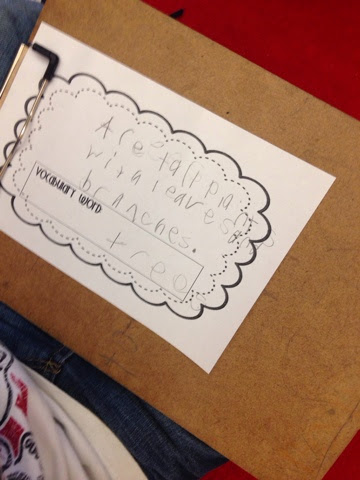 Are tall plants
with leaves and
branches.
VOCABULARY WORD:
trees